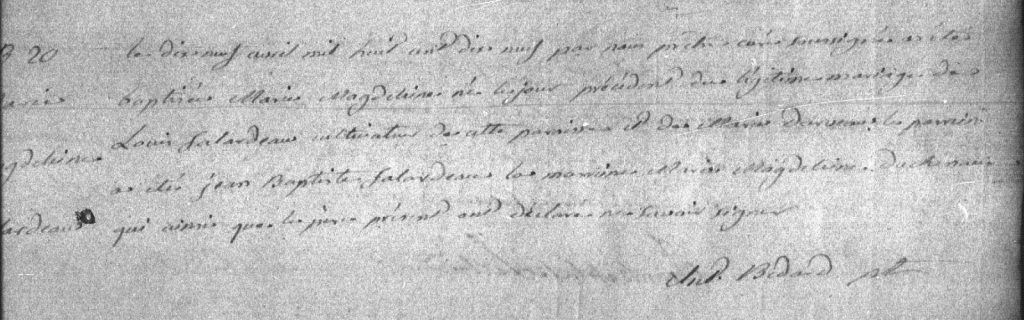 B 20
le dix neuf avril mil huit cent dix neuf par nous prêtre curé soussigné a été
Marie
baptisée Marie Magdeleine née le jour précédent du légitime mariage de
Louis falardeau cultivateur de cette paroisse et de Marie le parrain
agdeleine
a été jean Baptiste falardeau la marraine Marie Magdeleine
lardeau
qui ainsi que le père présent ont déclaré ne savoir signer
Ant. Bédard ptre